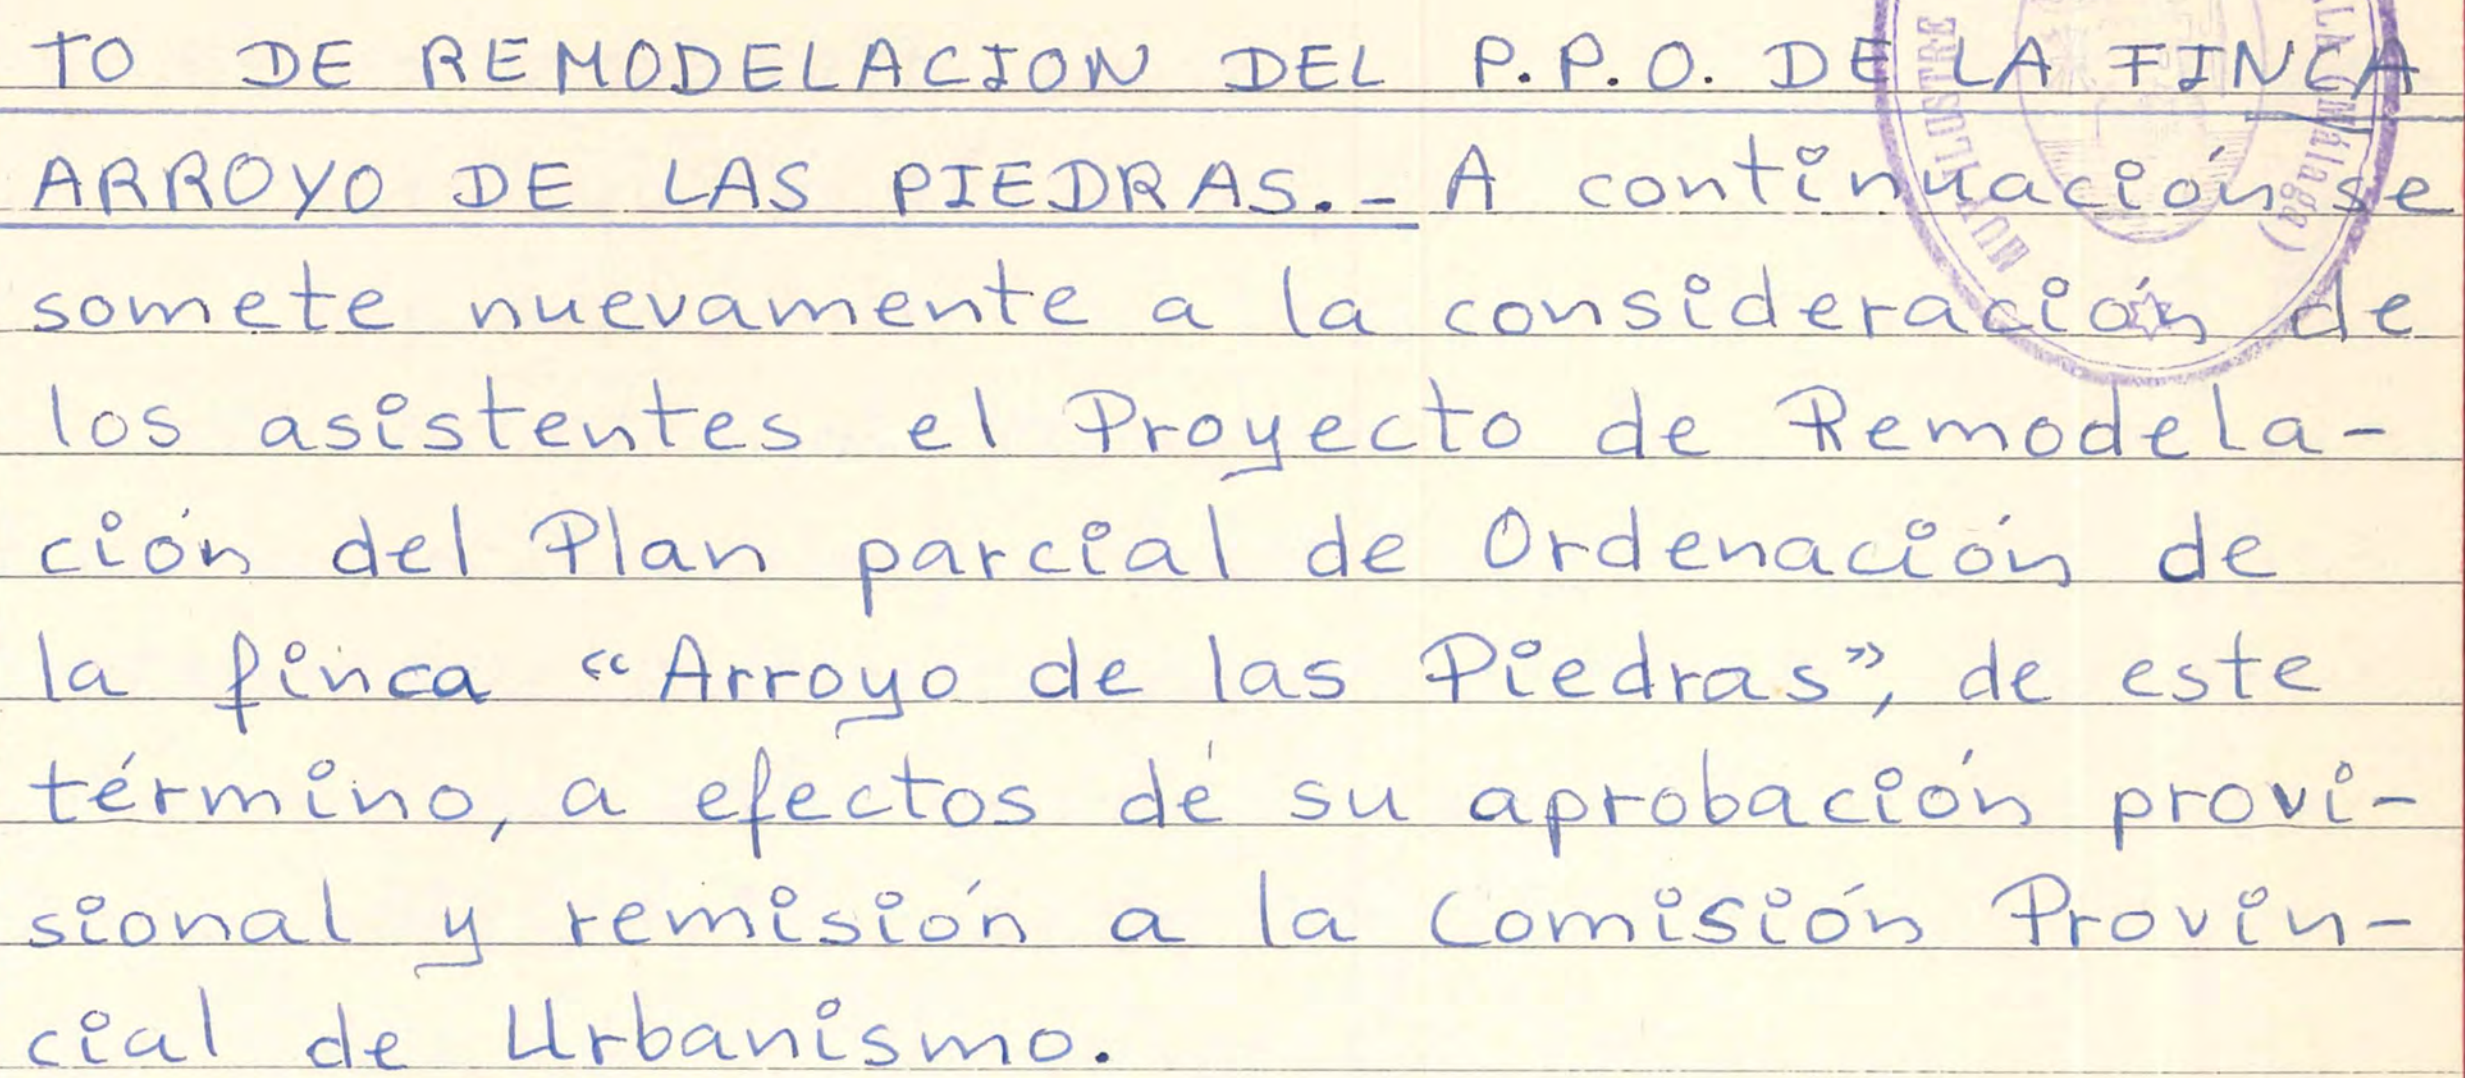 TO DE REMODELACION DEL P.P.O. DE LA FINCA
ARROYO DE LAS PIEDRAS.- A continuación se
somete nuevamente a la consideración de
los asistentes el Proyecto de Remodela-
ción del Plan parcial de Ordenación de
la finca “Arroyo de las Piedras”, de este
término, a efectos de su aprobación provi-
sional y remisión a la Comisión Provin-
cial de Urbanismo.
ILUSTRE
(Málaga)